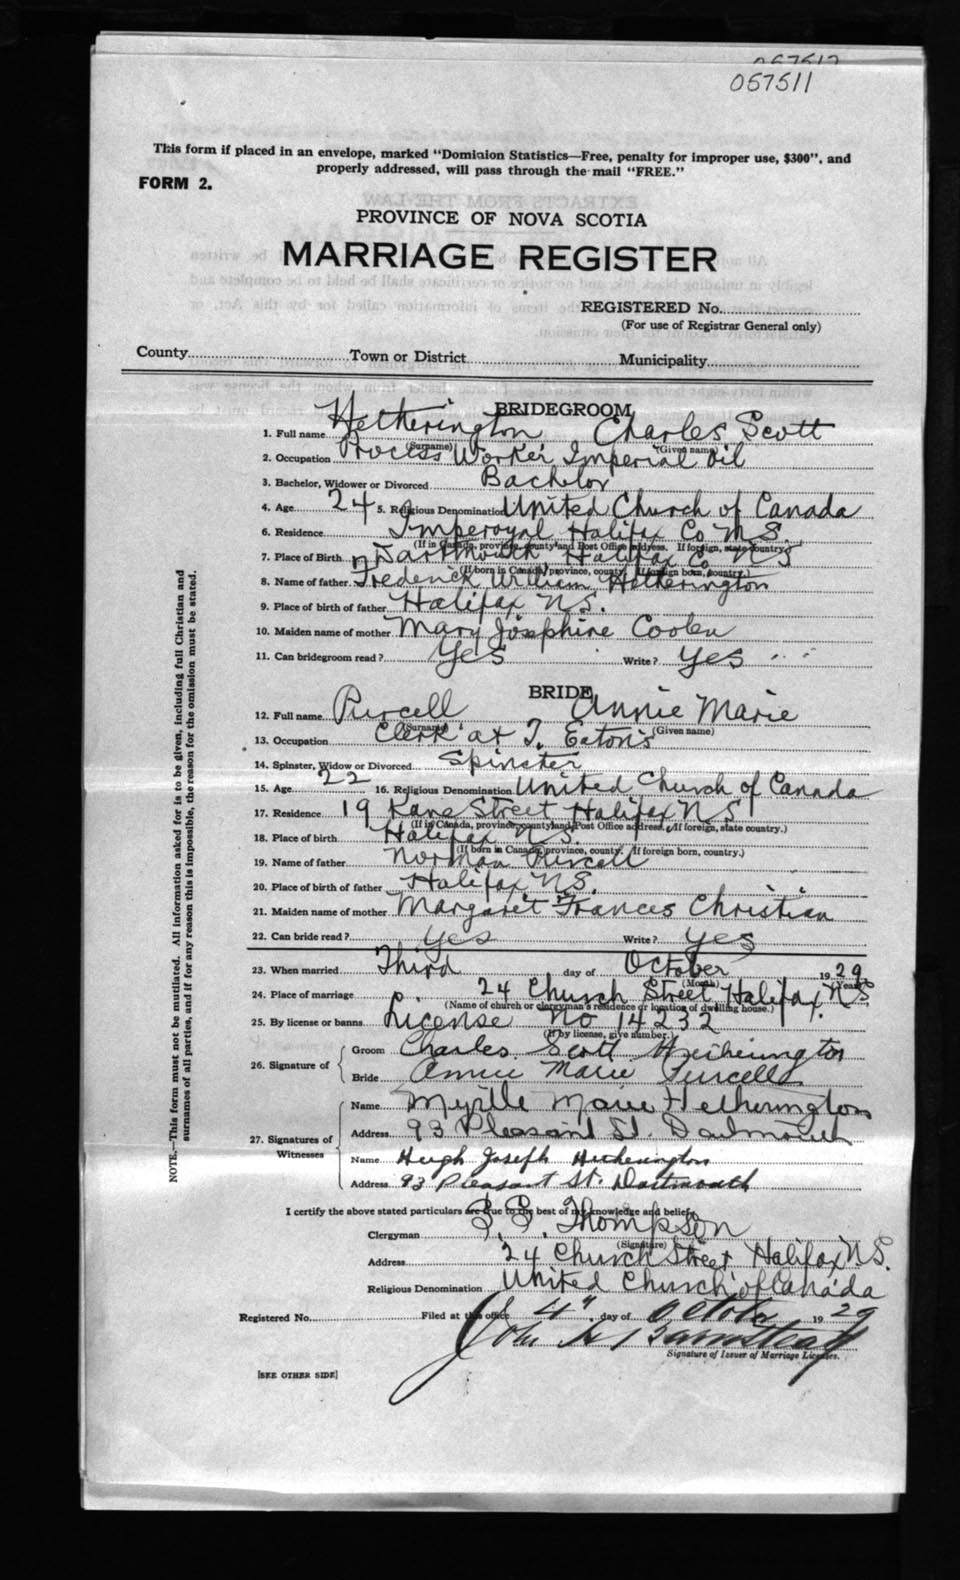 057512
057511
This form if placed in an envelope, marked "Dominion Statistics—Free, penalty for improper use, $300", and
properly addressed, will pass through the mail "FREE."
FORM 2.
PROVINCE OF NOVA SCOTIA
MARRIAGE REGISTER
REGISTERED No.
(For use of Registrar General only)
County Town or District Municipality
BRIDEGROOM
1. Full name Hetherington Charles Scott
(Surname) (Given name)
2. Occupation Process Worker Imperial Oil
3. Bachelor, Widower or Divorced Bachelor
4. Age 24 5. Religious Denomination United Church of Canada
6. Residence Imperoyal Halifax Co N.S.
(If in Canada, province, county and Post Office address. If foreign, state country.)
7. Place of Birth Dartmouth Halifax Co NS
(If born in Canada, province, county. If foreign born, country.)
8. Name of father Frederick William Hetherington
9. Place of birth of father Halifax N.S.
10. Maiden name of mother Mary Josephine Coolen
11. Can bridegroom read? Yes Write? Yes
BRIDE
12. Full name Purcell Annie Marie
(Surname) (Given name)
13. Occupation Clerk at T. Eaton's
14. Spinster, Widow or Divorced Spinster
15. Age 22 16. Religious Denomination United Church of Canada
17. Residence 19 Kane Street Halifax NS
(If in Canada, province, county and Post Office address. If foreign, state country.)
18. Place of birth Halifax N.S.
(If born in Canada, province, county. If foreign born, country.)
19. Name of father Norman Purcell
20. Place of birth of father Halifax N.S.
21. Maiden name of mother Margaret Frances Christian
22. Can bride read? yes Write? yes
23. When married Third day of October 1929
(Month) (Year)
24. Place of marriage 24 Church Street, Halifax, N.S
(Name of church or clergyman's residence or location of dwelling house.)
25. By license or banns License No 14232
(If by license, give number.)
26. Signature of Groom Charles Scott Hetherington
Bride Annie Marie Purcell
27. Signatures of Witnesses
Name Myrtle Marie Hetherington
Address 93 Pleasant St. Dartmouth
Name Hugh Joseph Hetherington
Address 93 Pleasant St. Dartmouth
I certify the above stated particulars are true to the best of my knowledge and belief.
Clergyman Thompson
(Signature)
Address 24 Church Street Halifax N.S.
Religious Denomination United Church of Canada
Registered No. Filed at this office 4" day of October 1929
John Barnstead
Signature of Issuer of Marriage Licenses.
[SEE OTHER SIDE]
NOTE.—This form must not be mutilated. All information asked for is to be given, including full Christian and
surnames of all parties, and if for any reason this is impossible, the reason for the omission must be stated.